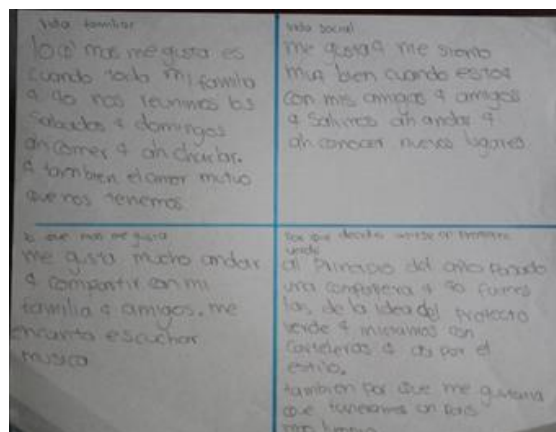 Vida familiar
lo q' mas me gusta es
cuando toda mi familia
y yo nos reunimos los
sabados y domingos
ah comer y ah charlar.
y tambien el amor mutuo
que nos tenemos
Vida social
me gusta y me siento
muy bien cuando estoy
con mis amigas y amigos
y salimos ah andar y
ah conocer nuevos lugares
lo que mas me gusta
me gusta mucho andar
y compartir con mi
familia y amigos. me
encanta escuchar
musica
Por que decidio unirse al
verde
al Principio del año Pasado
una compañera y yo fuimos
las de la idea del Proyecto
verde y iniciamos con
carteleras y asi por el
estilo.
tambien por que me gustaria
que tuvieramos un pais